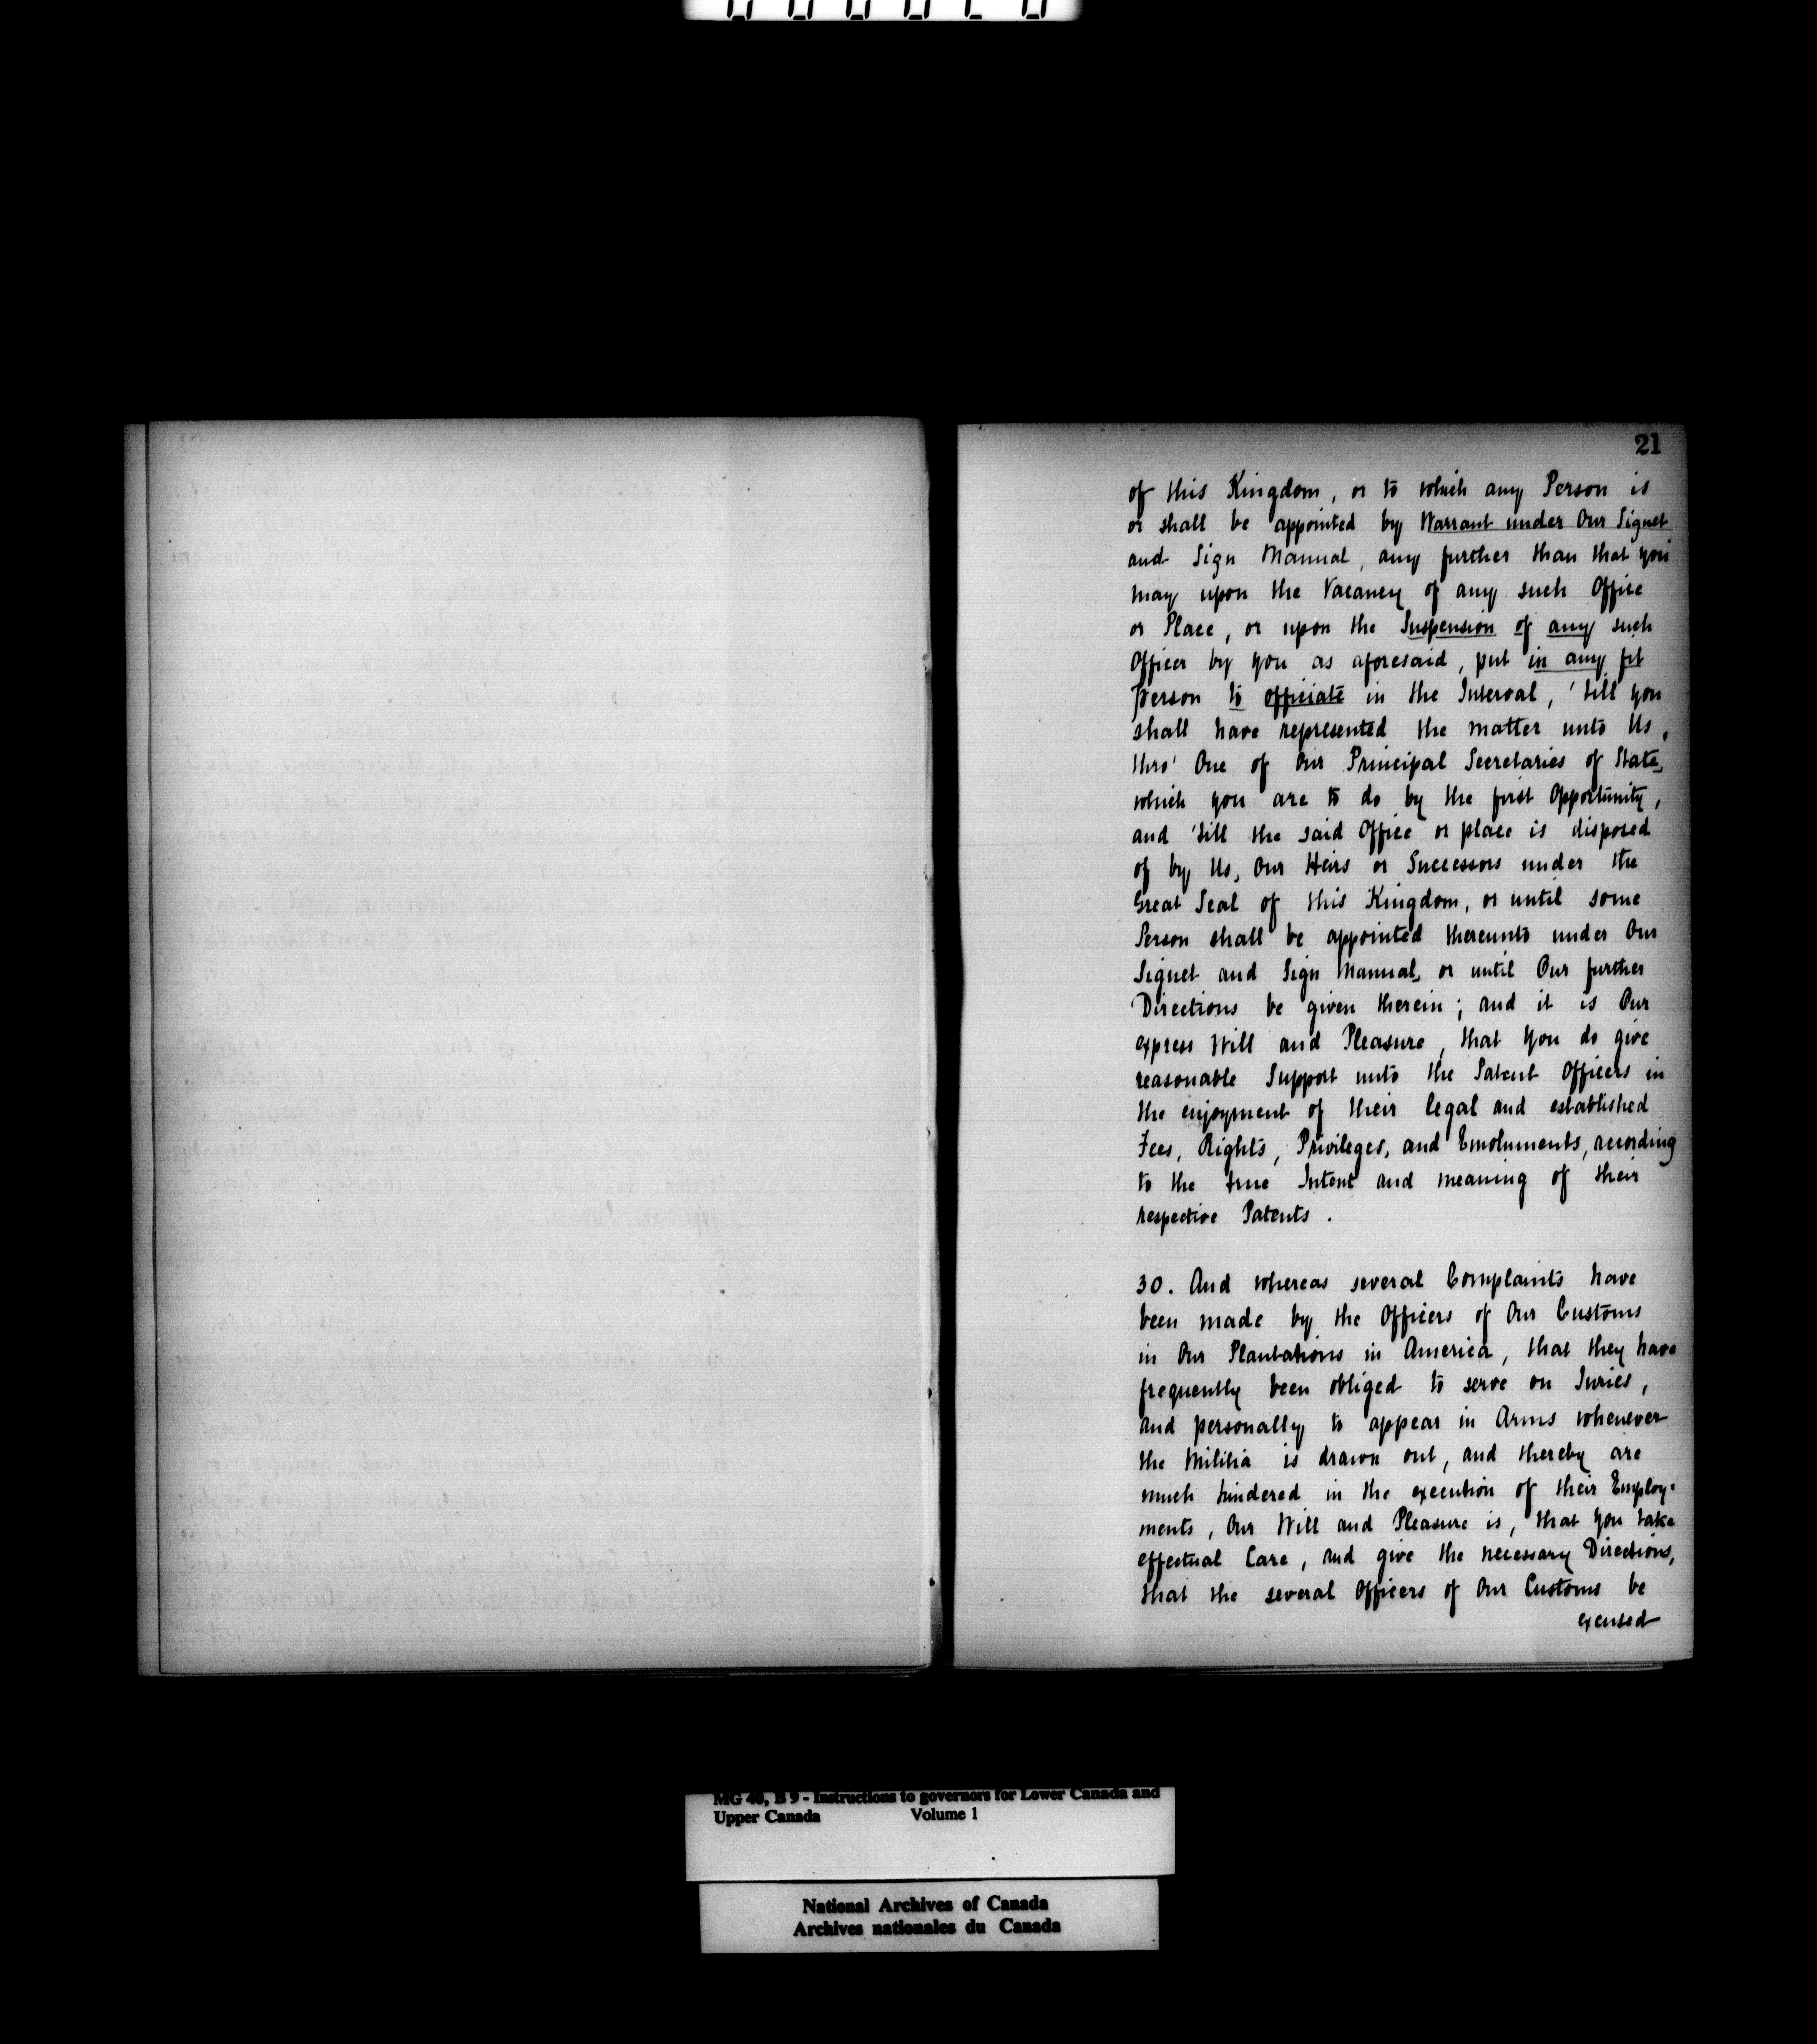 21
of this Kingdom, or to which any Person is
or shall be appointed by Warrant under Our Signet
and Sign Manual, any further than that you
may upon the Vacancy of any such Office
or Place, or upon the Suspension of any such
Officer by you as aforesaid, put in any fit
Person to officiate in the Interval, 'till you
shall have represented the matter unto Us,
thro' One of Our Principal Secretaries of State,
which you are to do by the first Opportunity,
and 'till the said Office or place is disposed
of by Us, Our Heirs or Successors under the
Great Seal of this Kingdom, or until some
Person shall be appointed thereunto under Our
Signet and Sign Manual, or until Our further
Directions be given therein; and it is Our
express Will and Pleasure, that you do give
reasonable Support unto the Patent Officers in
the enjoyment of their legal and established
Fees, Rights, Privileges, and Emoluments, according
to the true Intent and meaning of their
respective Patents.
30. And whereas several Complaints have
been made by the Officers of Our Customs
in Our Plantations in America, that they have
frequently been obliged to serve on Juries,
and personally to appear in Arms whenever
the Militia is drawn out, and thereby are
much hindered in the execution of their Employ-
ments, Our Will and Pleasure is, that you take
effectual Care, and give the necessary Directions,
that the several Officers of Our Customs be
excused
MG 40, B 9 - Instructions to governors for Lower Canada and
Upper Canada Volume 1
National Archives of Canada
Archives nationales du Canada